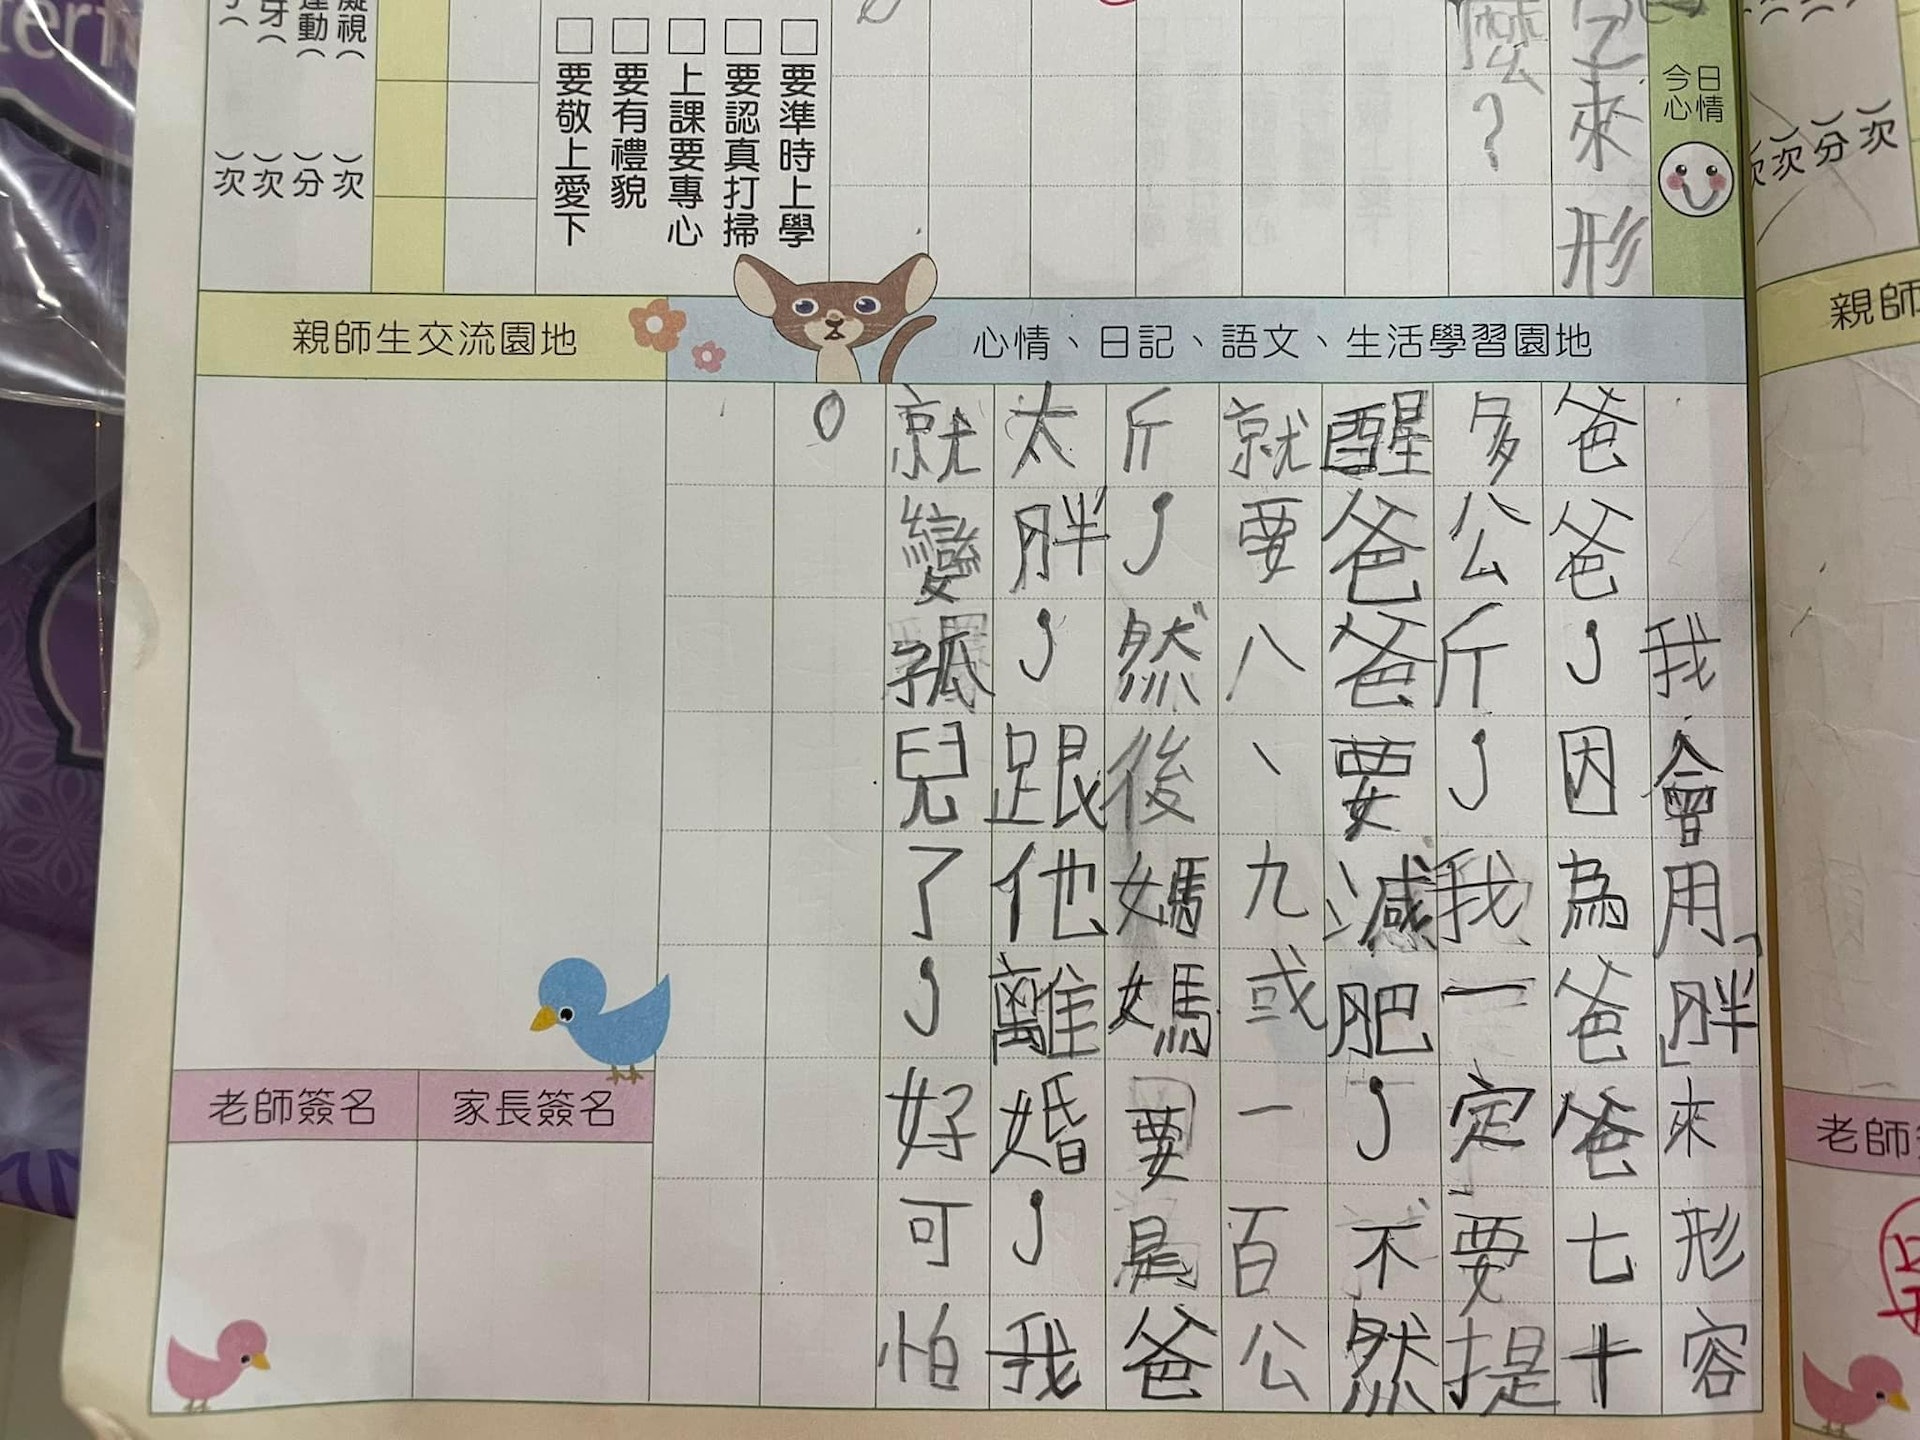 凝視(
運動(
牙(
)次
)分
)次
)次
□要準時上學
□要認真打掃
□上課要專心
□要有禮貌
□要敬上愛下
今日心情
來形
麼?
)次
)分
)次
親師生交流園地
心情、日記、語文、生活學習園地
我會用「胖」來形容
爸爸,因為爸爸七十
多公斤,我一定要提
醒爸爸要減肥,不然
就要八、九或一百公
斤,然後媽媽要是爸
太胖,跟他離婚,我
就變孤兒了,好可怕
。
老師簽名
家長簽名
親師